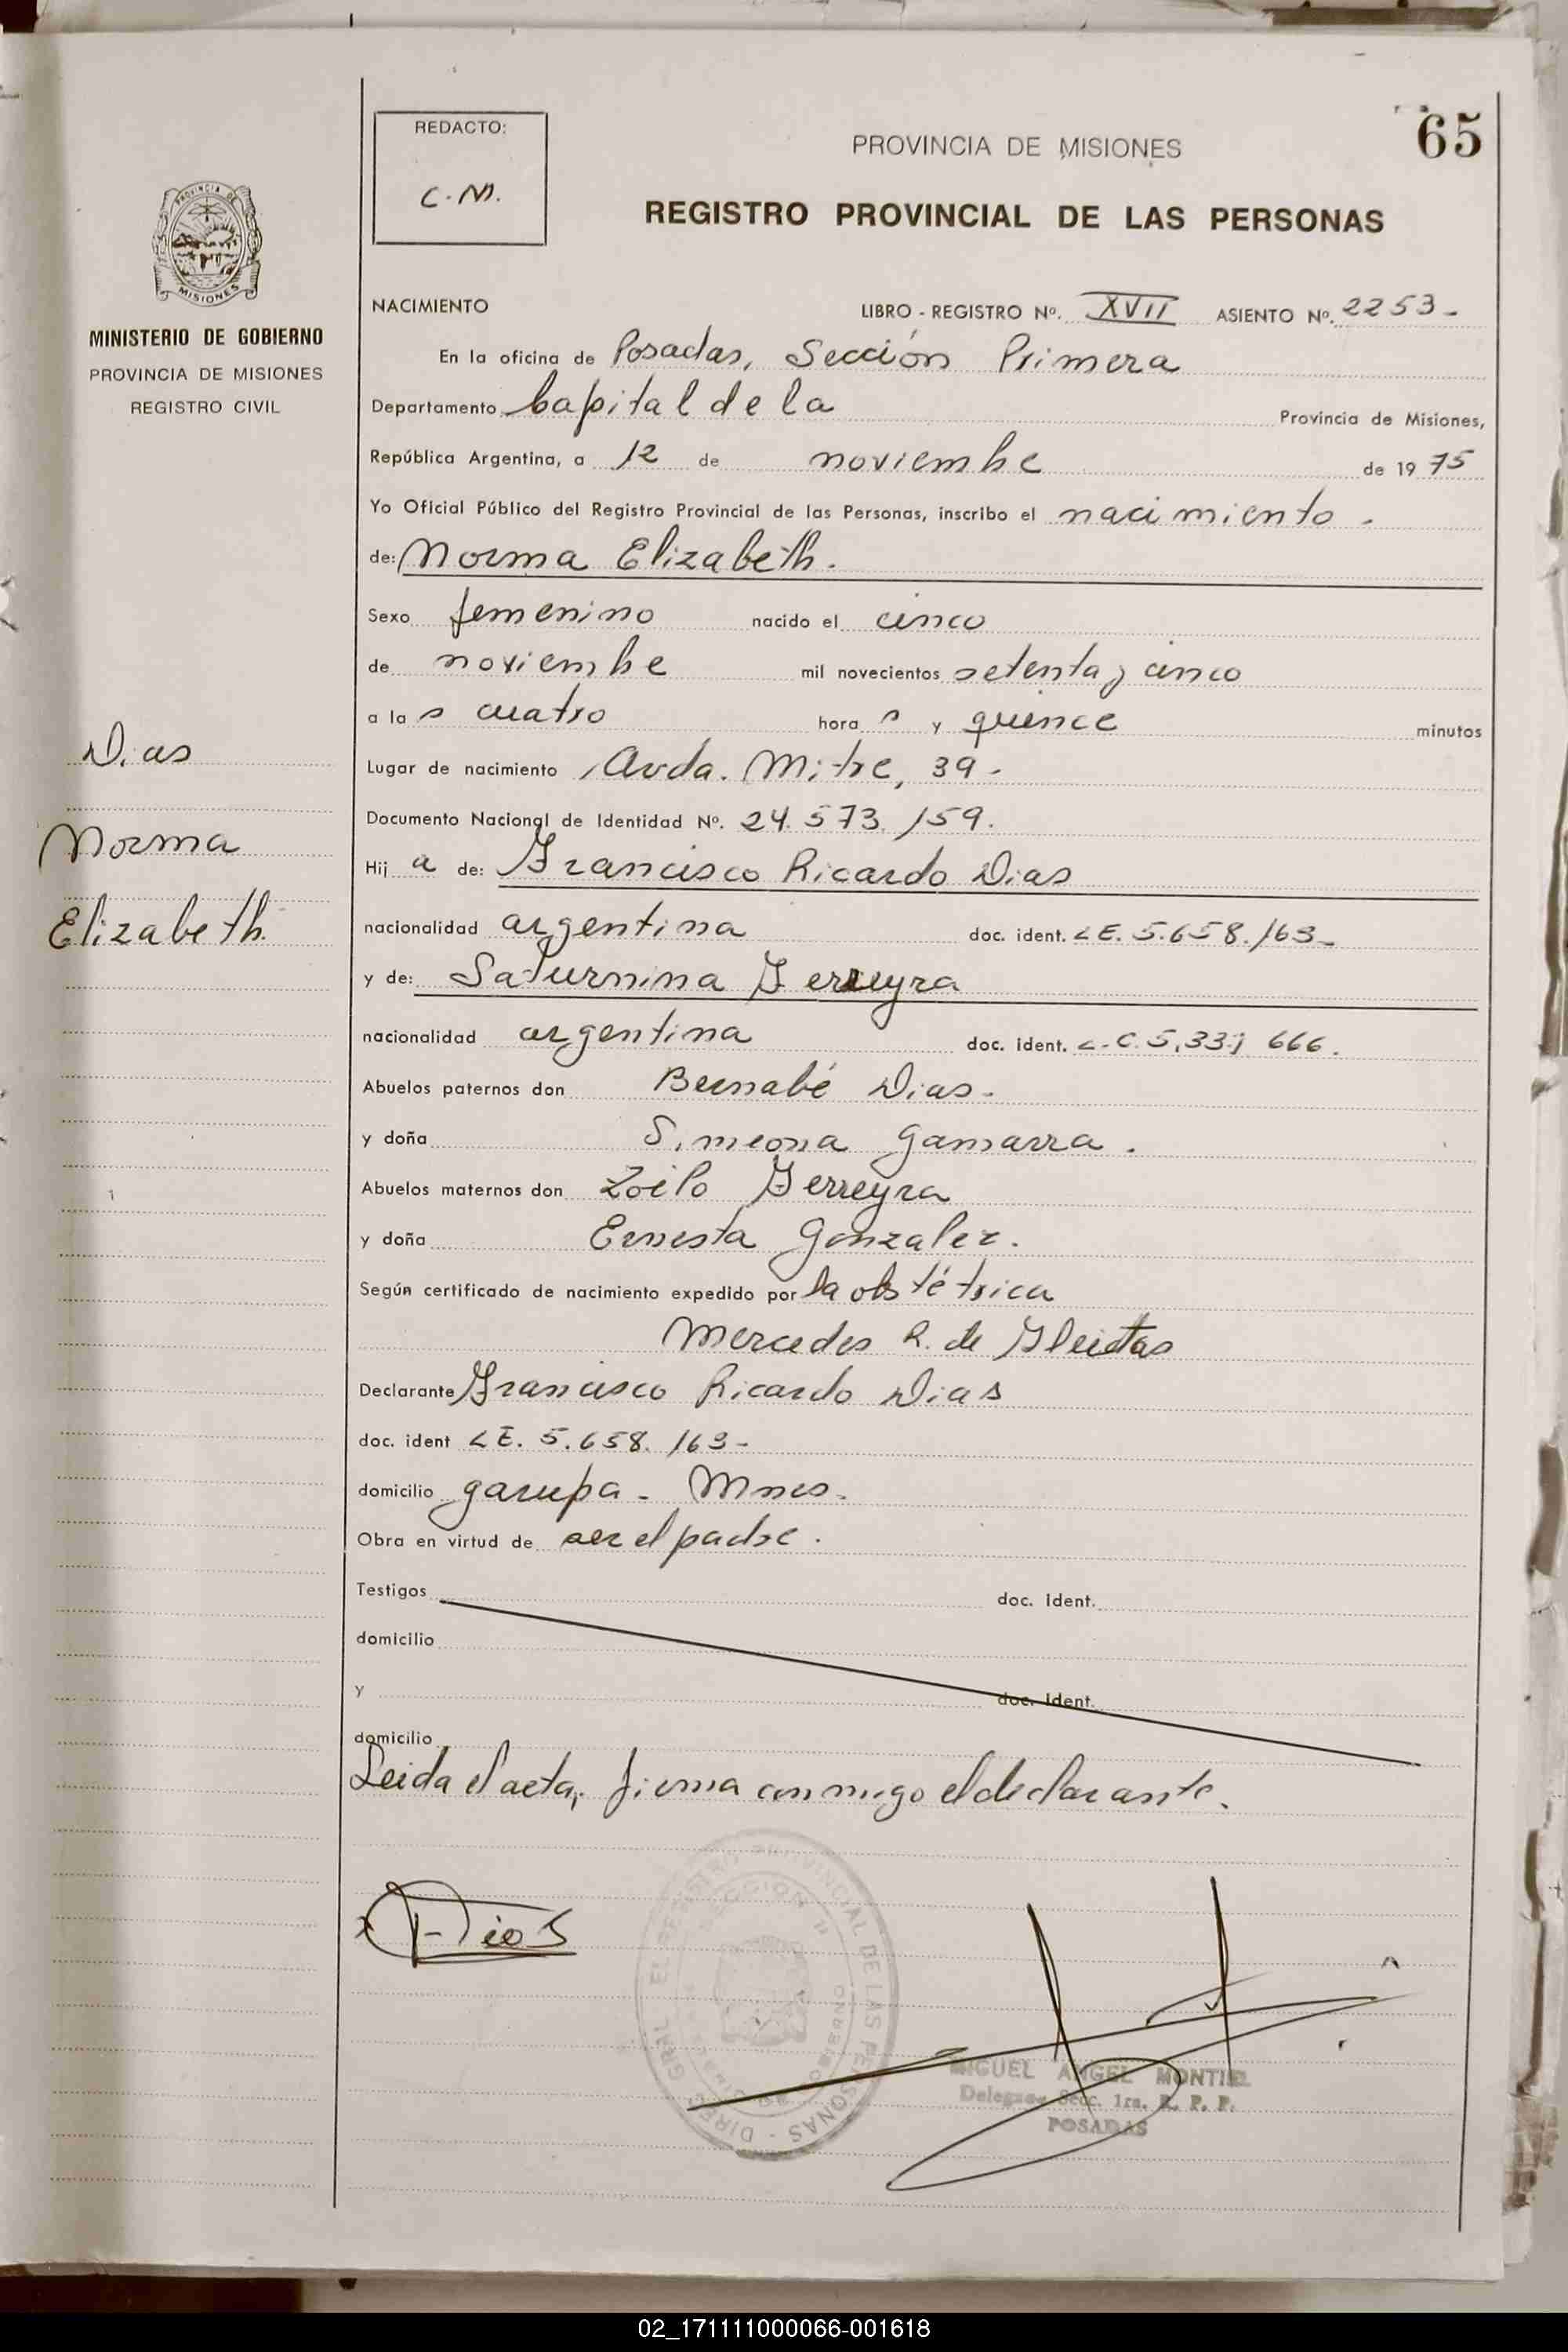 65
REDACTO:
C.M.
PROVINCIA DE MISIONES
REGISTRO PROVINCIAL DE LAS PERSONAS
PROVINCIA DE
MISIONES
MINISTERIO DE GOBIERNO
PROVINCIA DE MISIONES
REGISTRO CIVIL
Dias
Norma
Elizabeth.
NACIMIENTO LIBRO - REGISTRO Nº. XVII ASIENTO Nº. 2253-
En la oficina de Posadas, Sección Primera
Departamento Capital de la Provincia de Misiones,
República Argentina, a 12 de noviembre de 1975
Yo Oficial Público del Registro Provincial de las Personas, inscribo el nacimiento.
de: Norma Elizabeth.
Sexo femenino nacido el cinco
de noviembre mil novecientos setenta y cinco
a la s cuatro hora s y quince minutos
Lugar de nacimiento Avda. Mitre, 39-
Documento Nacional de Identidad Nº. 24.573.159.
Hij a de: Francisco Ricardo Dias
nacionalidad argentina doc. ident. LE. 5.658.163-
y de: Saturnina Ferreyra
nacionalidad argentina doc. ident. L.C. 666.
Abuelos paternos don Bernabé Dias-
y doña Simeona Gamarra.
Abuelos maternos don Zoilo Ferreyra
y doña Ernesta Gonzalez.
Según certificado de nacimiento expedido por la obstétrica
Mercedes R. de
Declarante Francisco Ricardo Dias
doc. ident LE. 5.658.163-
domicilio garupa - Mnes.
Obra en virtud de ser el padre.
Testigos doc. ident.
domicilio
y doc. ident.
domicilio
Leida el acta, firma conmigo el declarante.
MIGUEL ANGEL MONTIEL
Delegado Secc. 1ra. R. P. P.
POSADAS
02_171111000066-001618